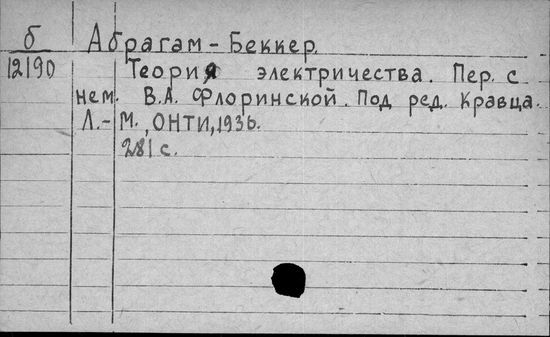 б Абрагам-Беккер.
12190 Теория электричества. Пер. с
нем. В.А. Флоринской. Под ред. Кравца.
Л.-М., ОНТИ, 1936.
281 с.